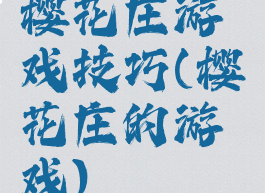 樱花庄游
戏技巧(樱
花庄的游
戏)